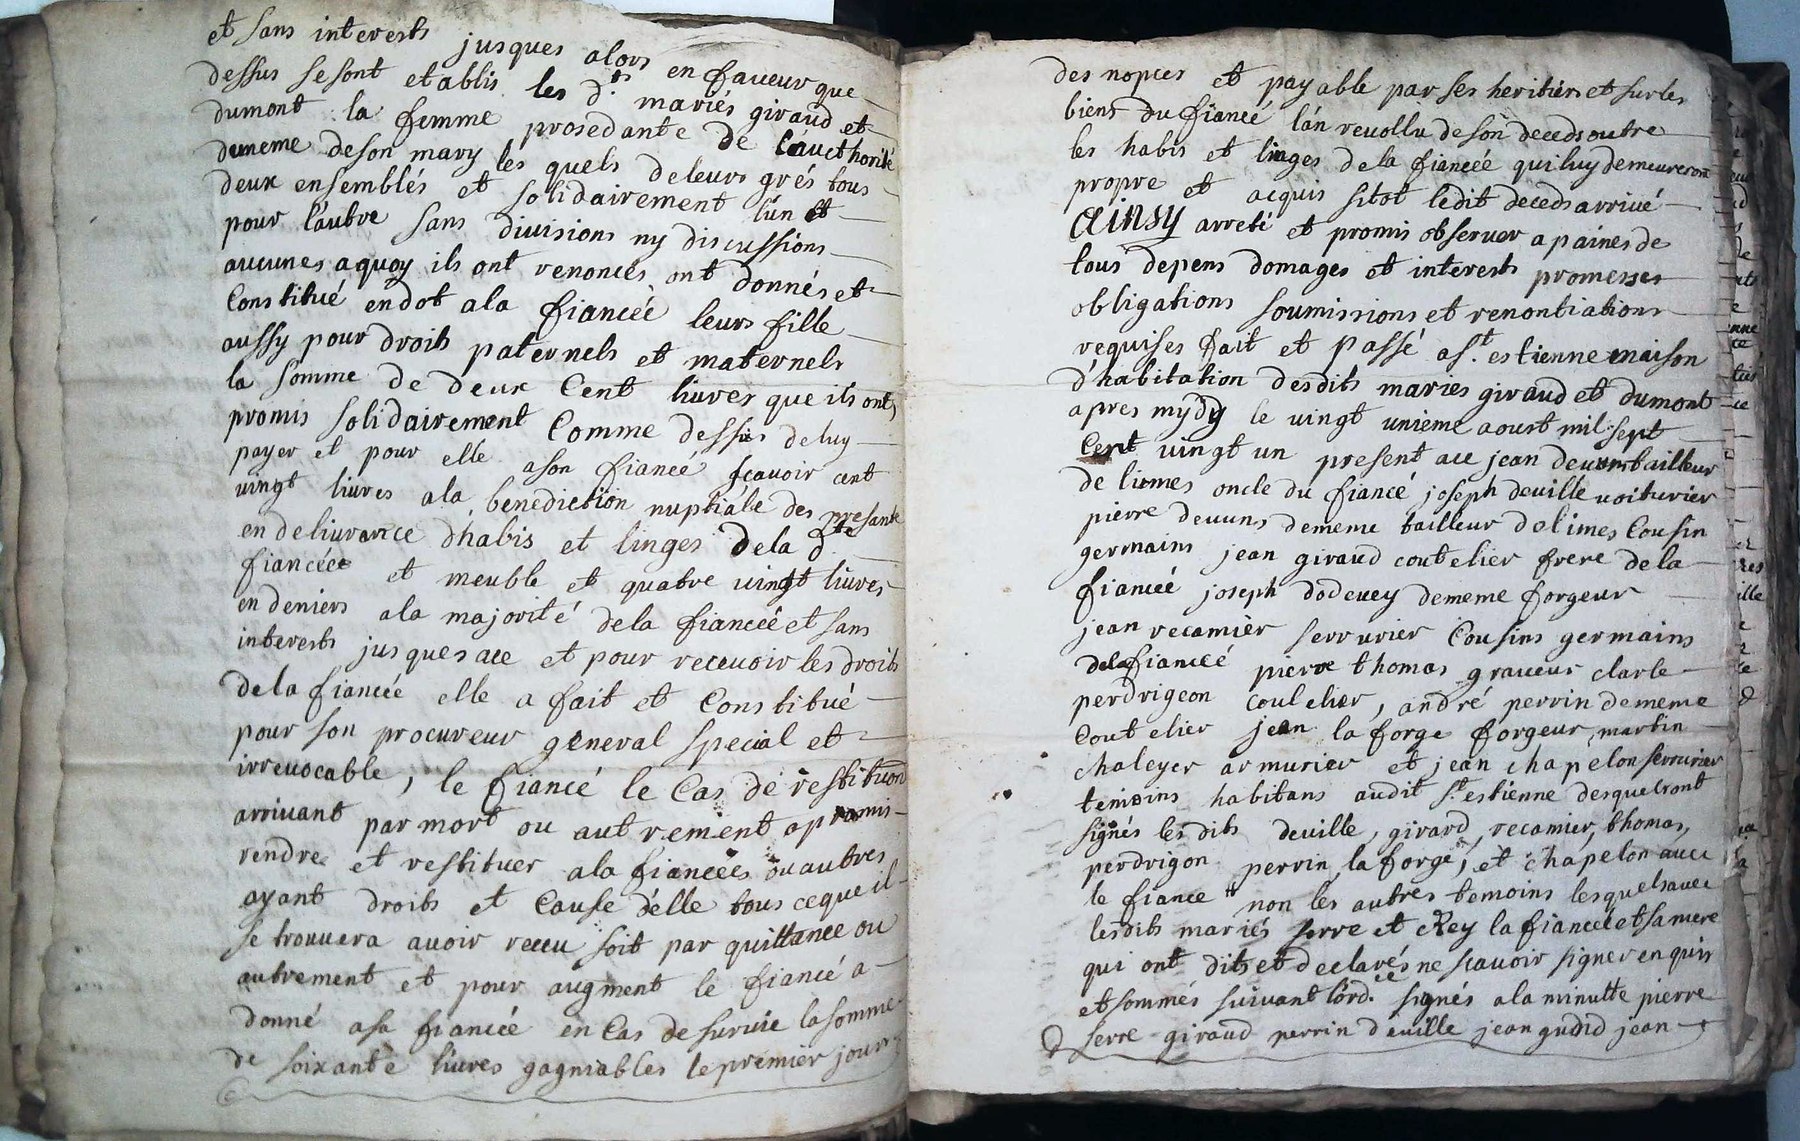 et sans interests jusques alors en faueur que
dessus se sont etablis les d.ts mariés giraud et
dumont la femme prosedante de l'aucthorité
dememe de son mary les quels de leurs grés tous
deux ensemblés et solidairement l'un et
pour l'autre sans diuisions ny discussions
aucunes aquoy ils ont renoncés ont donnés et
Constitué en dot ala fiancéé leurs fille
aussy pour droits paternels et maternels
la somme de deux Cent liures que ils ont
promis solidairement Comme dessus de luy
payer et pour elle ason fiancé scavoir cent
vingt liures ala benediction nuptiale des presante
en deliurance d'habis et linges dela d.te
fiancéé et meuble et quatre vingt liures
en deniers ala majorité dela fiancéé et sans
interests jusques ace et pour receuoir les droits
dela fiancée elle a fait et Constitué
pour son procureur general special et
irreuocable, le fiancé le Cas de restituon
arriuant par mort ou autrement a promis
rendre et restituer ala fiancéé ou autres
ayant droits et Cause d'elle tous ce que il
se trouuera avoir receu soit par quittance ou
autrement et pour augment le fiancé a
donné asa fiancéé en Cas de suruie la somme
de soixante liures gagniables le premier jour
des nopces et payable par ses heritiers et sur les
biens du fiancé l'an reuollu de son deceds outre
les habis et linges dela fiancéé qui luy demeureront
propre et acquis sitot ledit deceds arriué
Ainsy arreté et promis obseruer a paines de
tous depens domages et interests promesses
obligations soumissions et renontiations
requises fait et Passé a s.t estienne maison
d'habitation desdits mariés giraud et dumont
apres mydy le vingt unieme aoust mil sept
Cent vingt un present ace jean deuuns tailleur
de limes oncle du fiancé joseph deuille voiturier
pierre deuuns dememe tailleur de limes Cousin
germains jean giraud coutelier frere dela
fiancéé joseph dodeuey dememe forgeur
jean recamier serrurier Cousins germains
dela fiancéé pierre thomas graueur clarle
perdrigeon coutelier, andré perrin dememe
Coutelier jean la forge forgeur, martin
chaleyer armurier et jean chapelon serrurier
temoins habitans audit s.t estienne desquels ont
signés lesdits deuille, girard, recamier, thomas,
perdrigon perrin, la forge, et chapelon auec
le fiance non les autres temoins lesquels auec
lesdits mariés serre et Rey la fiancéé et sa mere
qui ont dits et declarés ne scauoir signer enquis
et sommés suiuant l'ord.ce signés ala minutte pierre
serre giraud perrin deuille jean jean